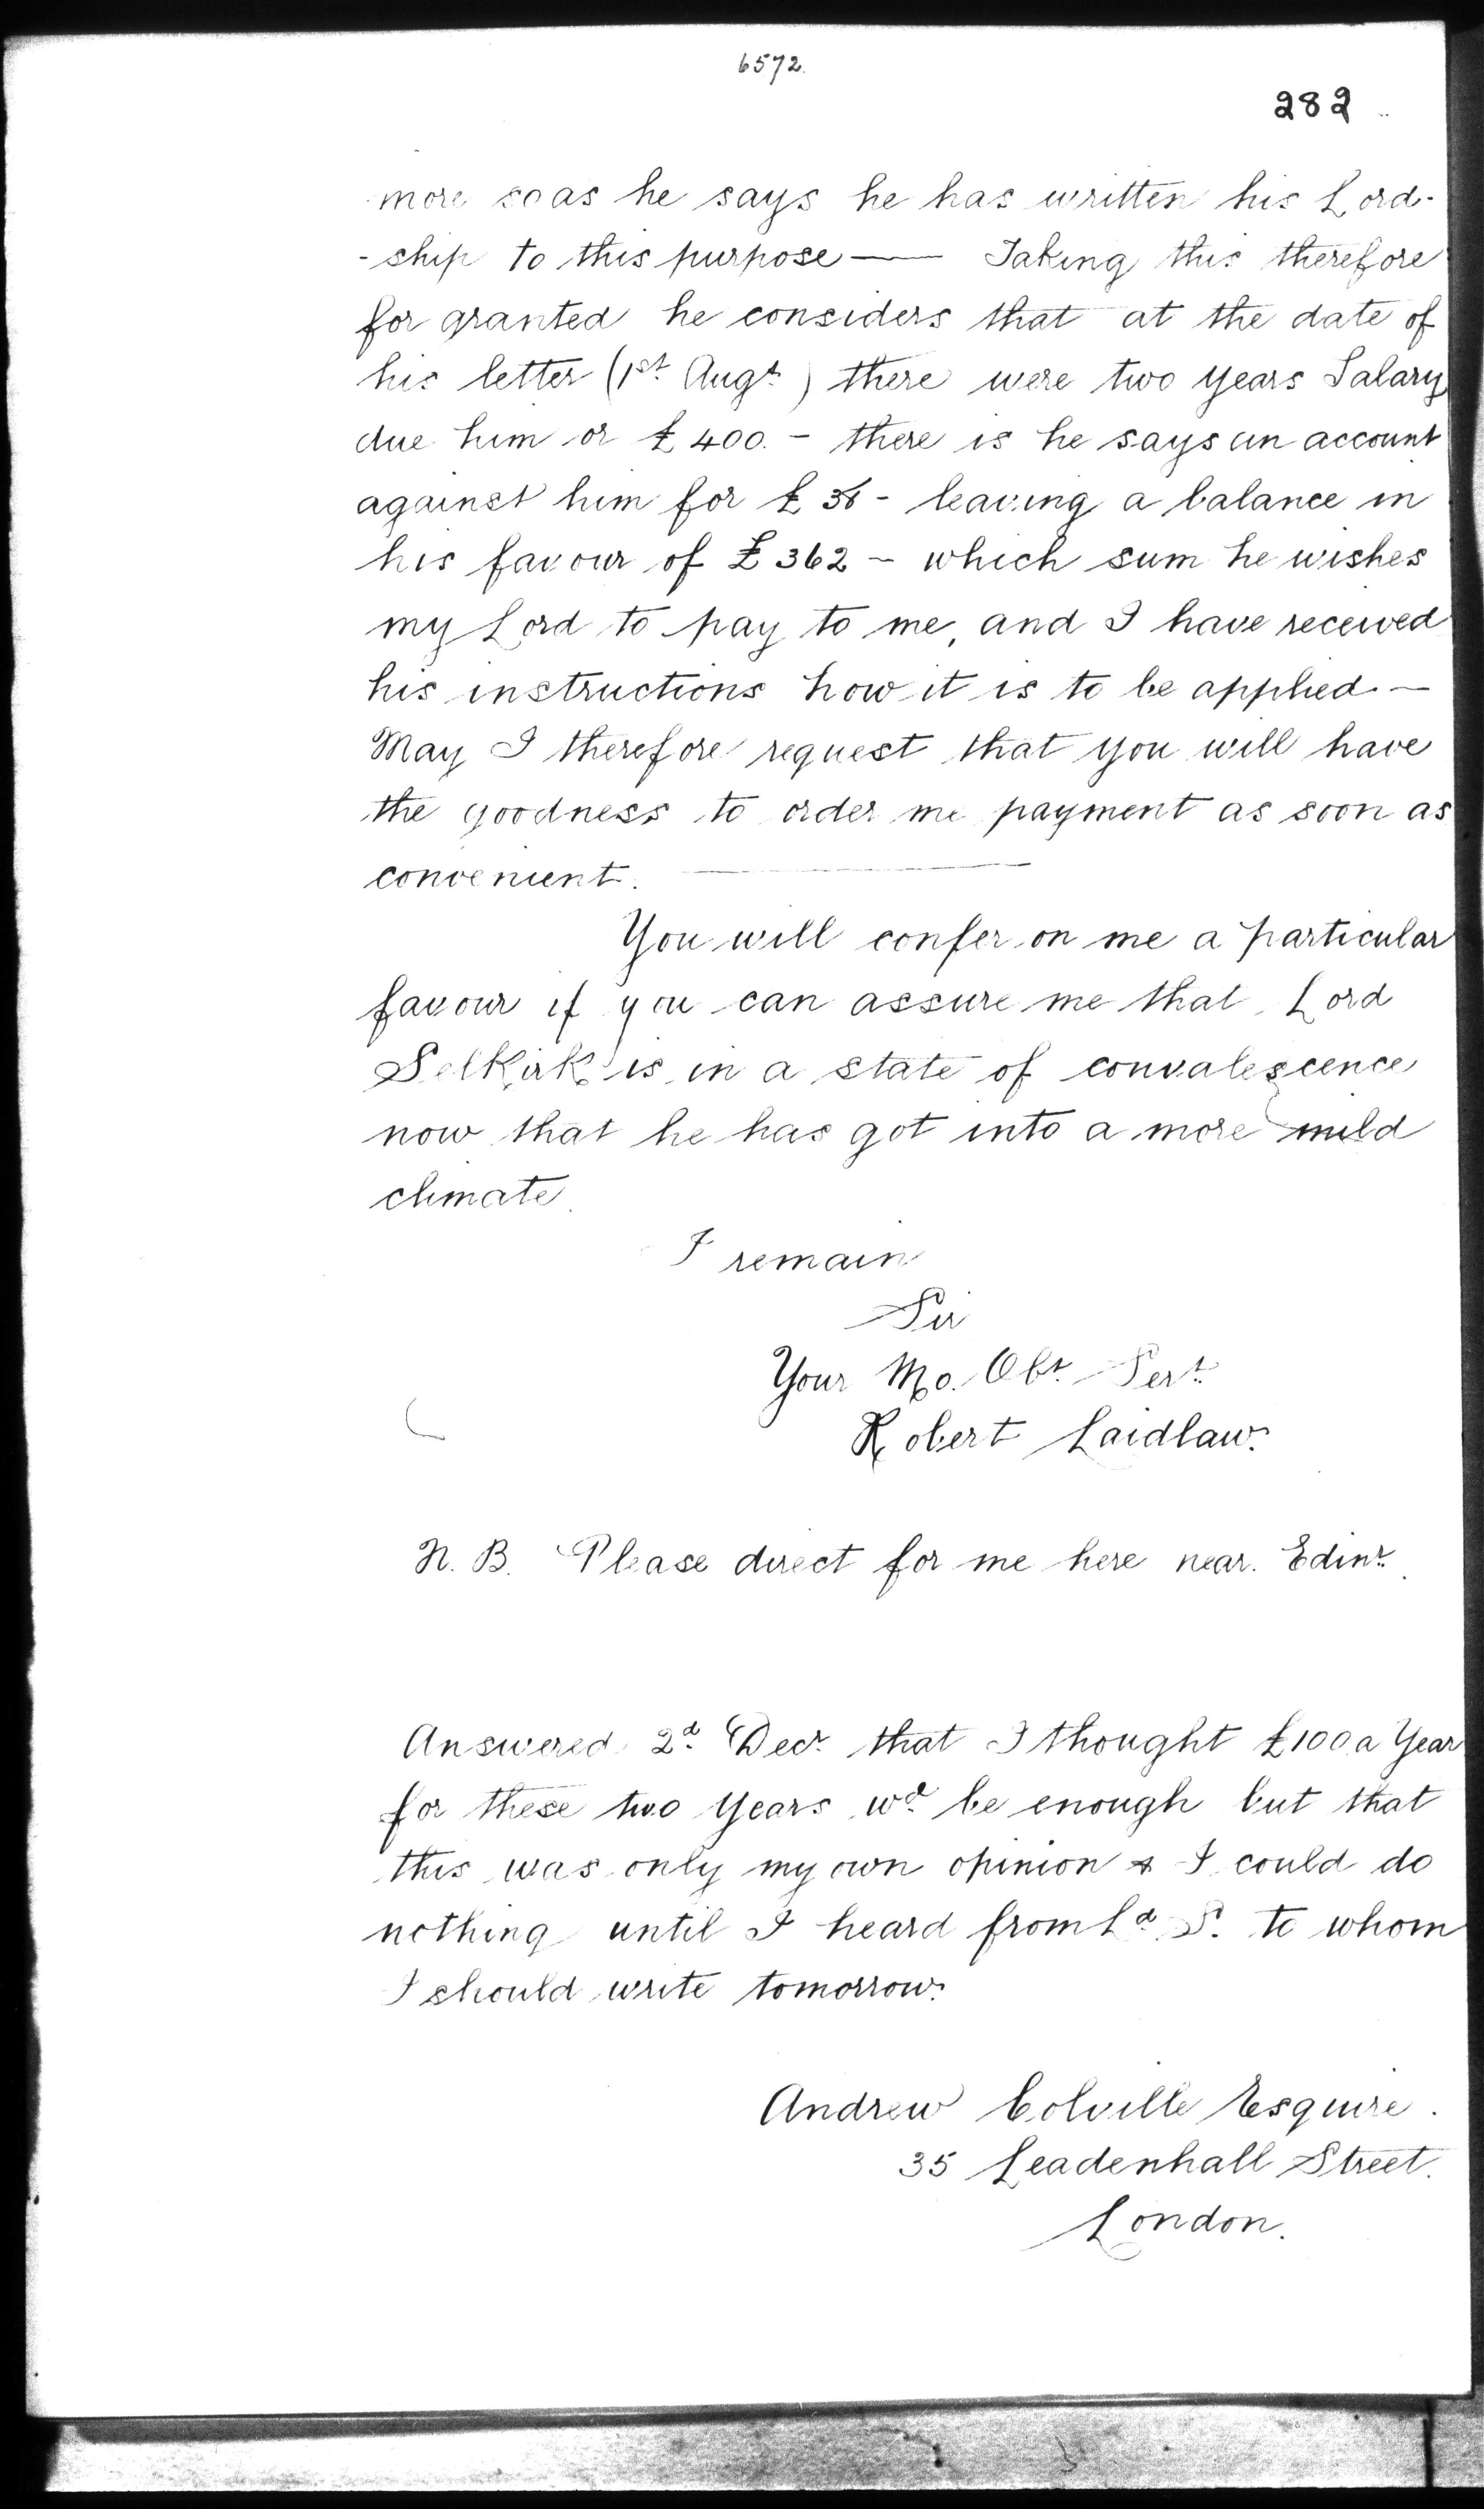 6572.
282
more so as he says he has written his Lord-
-ship to this purpose — Taking this therefore
for granted he considers that at the date of
his letter (1st Augt) there were two years Salary
due him or £400. - there is he says an account
against him for £38 - leaving a balance in
his favour of £362 - which sum he wishes
my Lord to pay to me, and I have received
his instructions how it is to be applied. —
May I therefore request that you will have
the goodness to order me payment as soon as
convenient. —
You will confer on me a particular
favour if you can assure me that Lord
Selkirk is in a state of convalescence
now that he has got into a more mild
climate.
I remain
Sir
Your Mo. Obt Sert
Robert Laidlaw.
N. B. Please direct for me here near Edinr.
Answered 2d Decr that I thought £100 a Year
for these two Years wd be enough but that
this was only my own opinion & I could do
nothing until I heard from Ld S. to whom
I should write tomorrow.
Andrew Colville Esquire.
35 Leadenhall Street.
London.